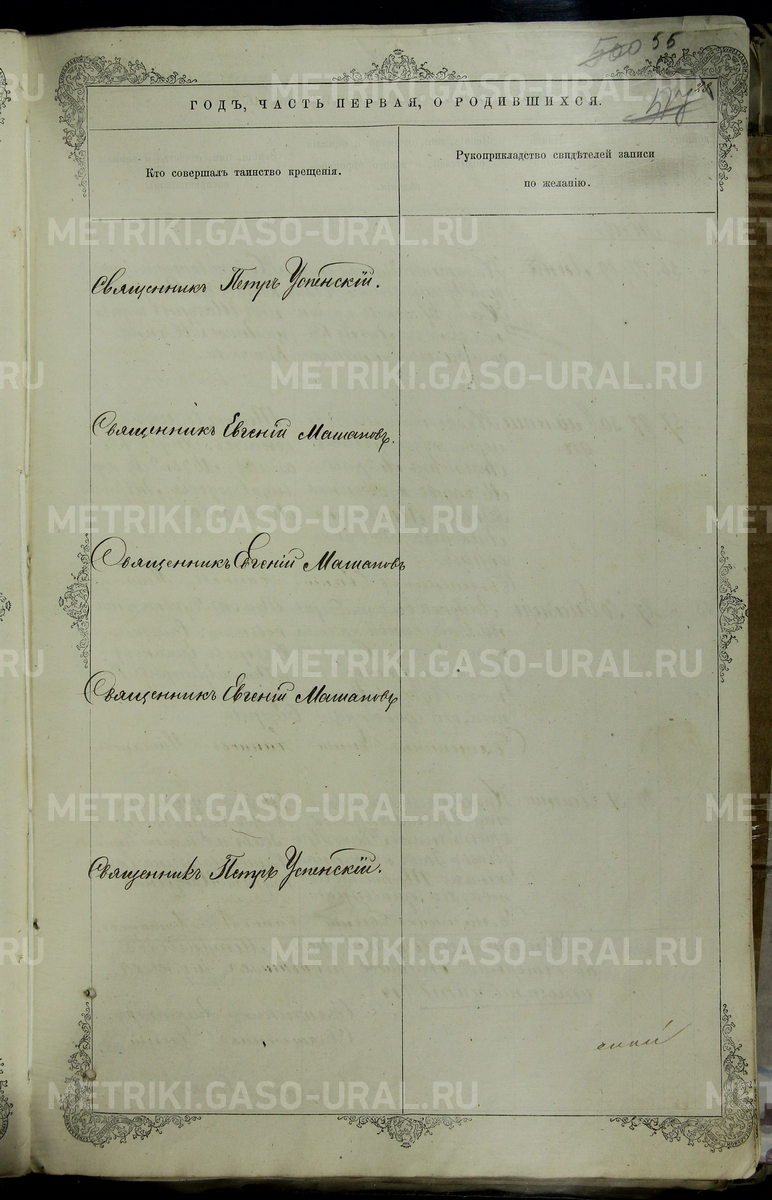 500 55
ГОДЪ, ЧАСТЬ ПЕРВАЯ, О РОДИВШИХСЯ.
Кто совершалъ таинство крещенія.
Рукоприкладство свидѣтелей записи
по желанію.
Священникъ Петръ Успенскій.
Священникъ Евгеній Машановъ.
Священникъ Евгеній Машановъ
Священникъ Евгеній Машановъ
Священникъ Петръ Успенскій.
METRIKI.GASO-URAL.RU